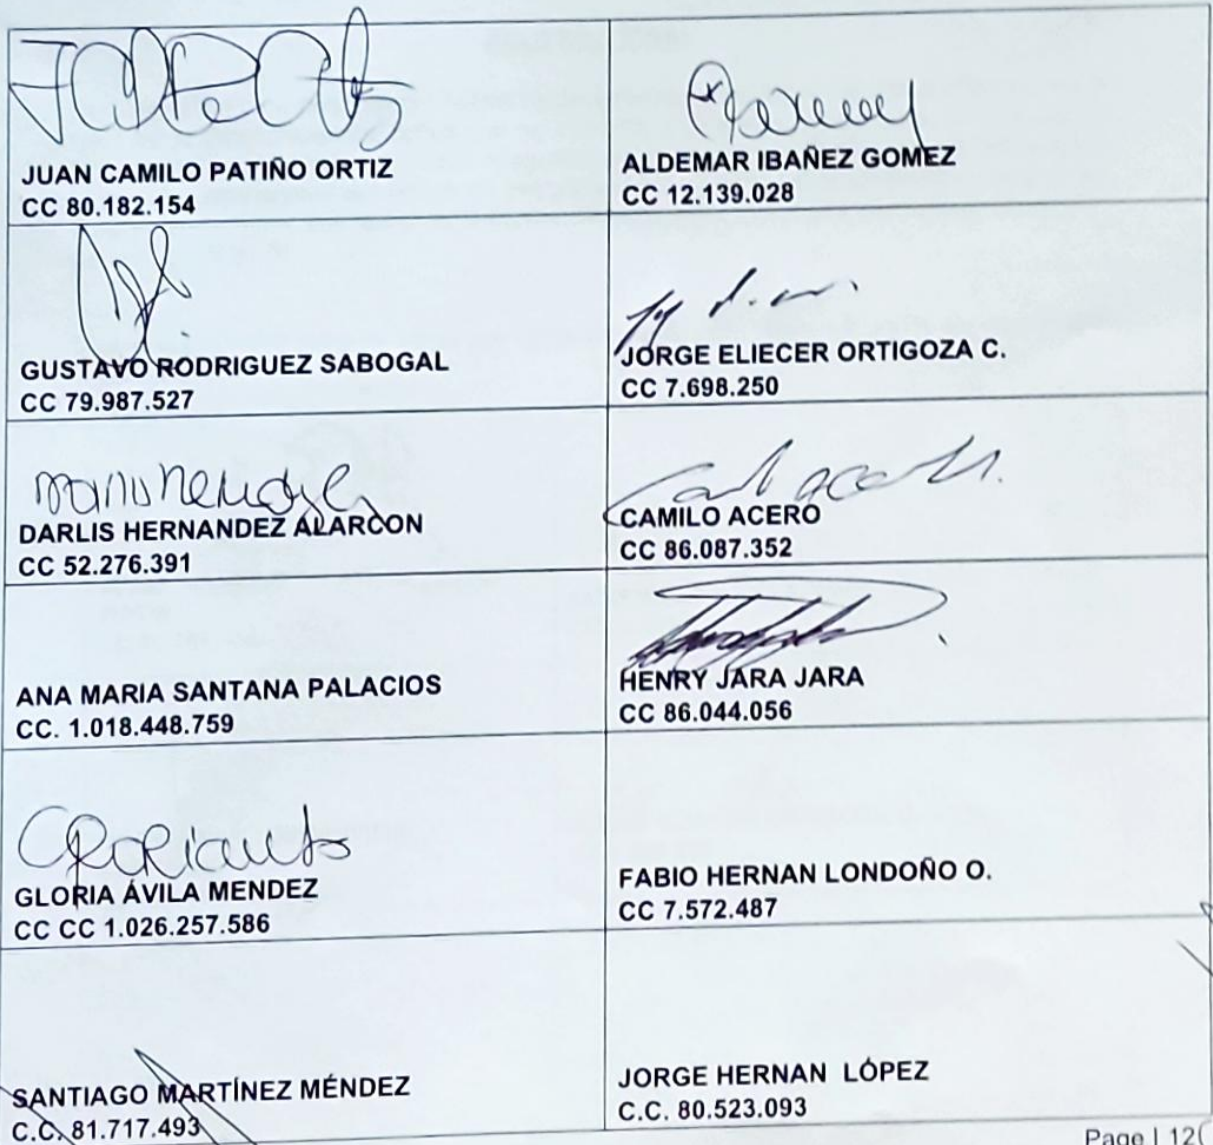 JUAN CAMILO PATIÑO ORTIZ
CC 80.182.154
ALDEMAR IBAÑEZ GOMEZ
CC 12.139.028
GUSTAVO RODRIGUEZ SABOGAL
CC 79.987.527
JORGE ELIECER ORTIGOZA C.
CC 7.698.250
DARLIS HERNANDEZ ALARCON
CC 52.276.391
CAMILO ACERO
CC 86.087.352
ANA MARIA SANTANA PALACIOS
CC. 1.018.448.759
HENRY JARA JARA
CC 86.044.056
GLORIA ÁVILA MENDEZ
CC CC 1.026.257.586
FABIO HERNAN LONDOÑO O.
CC 7.572.487
SANTIAGO MARTÍNEZ MÉNDEZ
C.C. 81.717.493
JORGE HERNAN LÓPEZ
C.C. 80.523.093
Page | 12